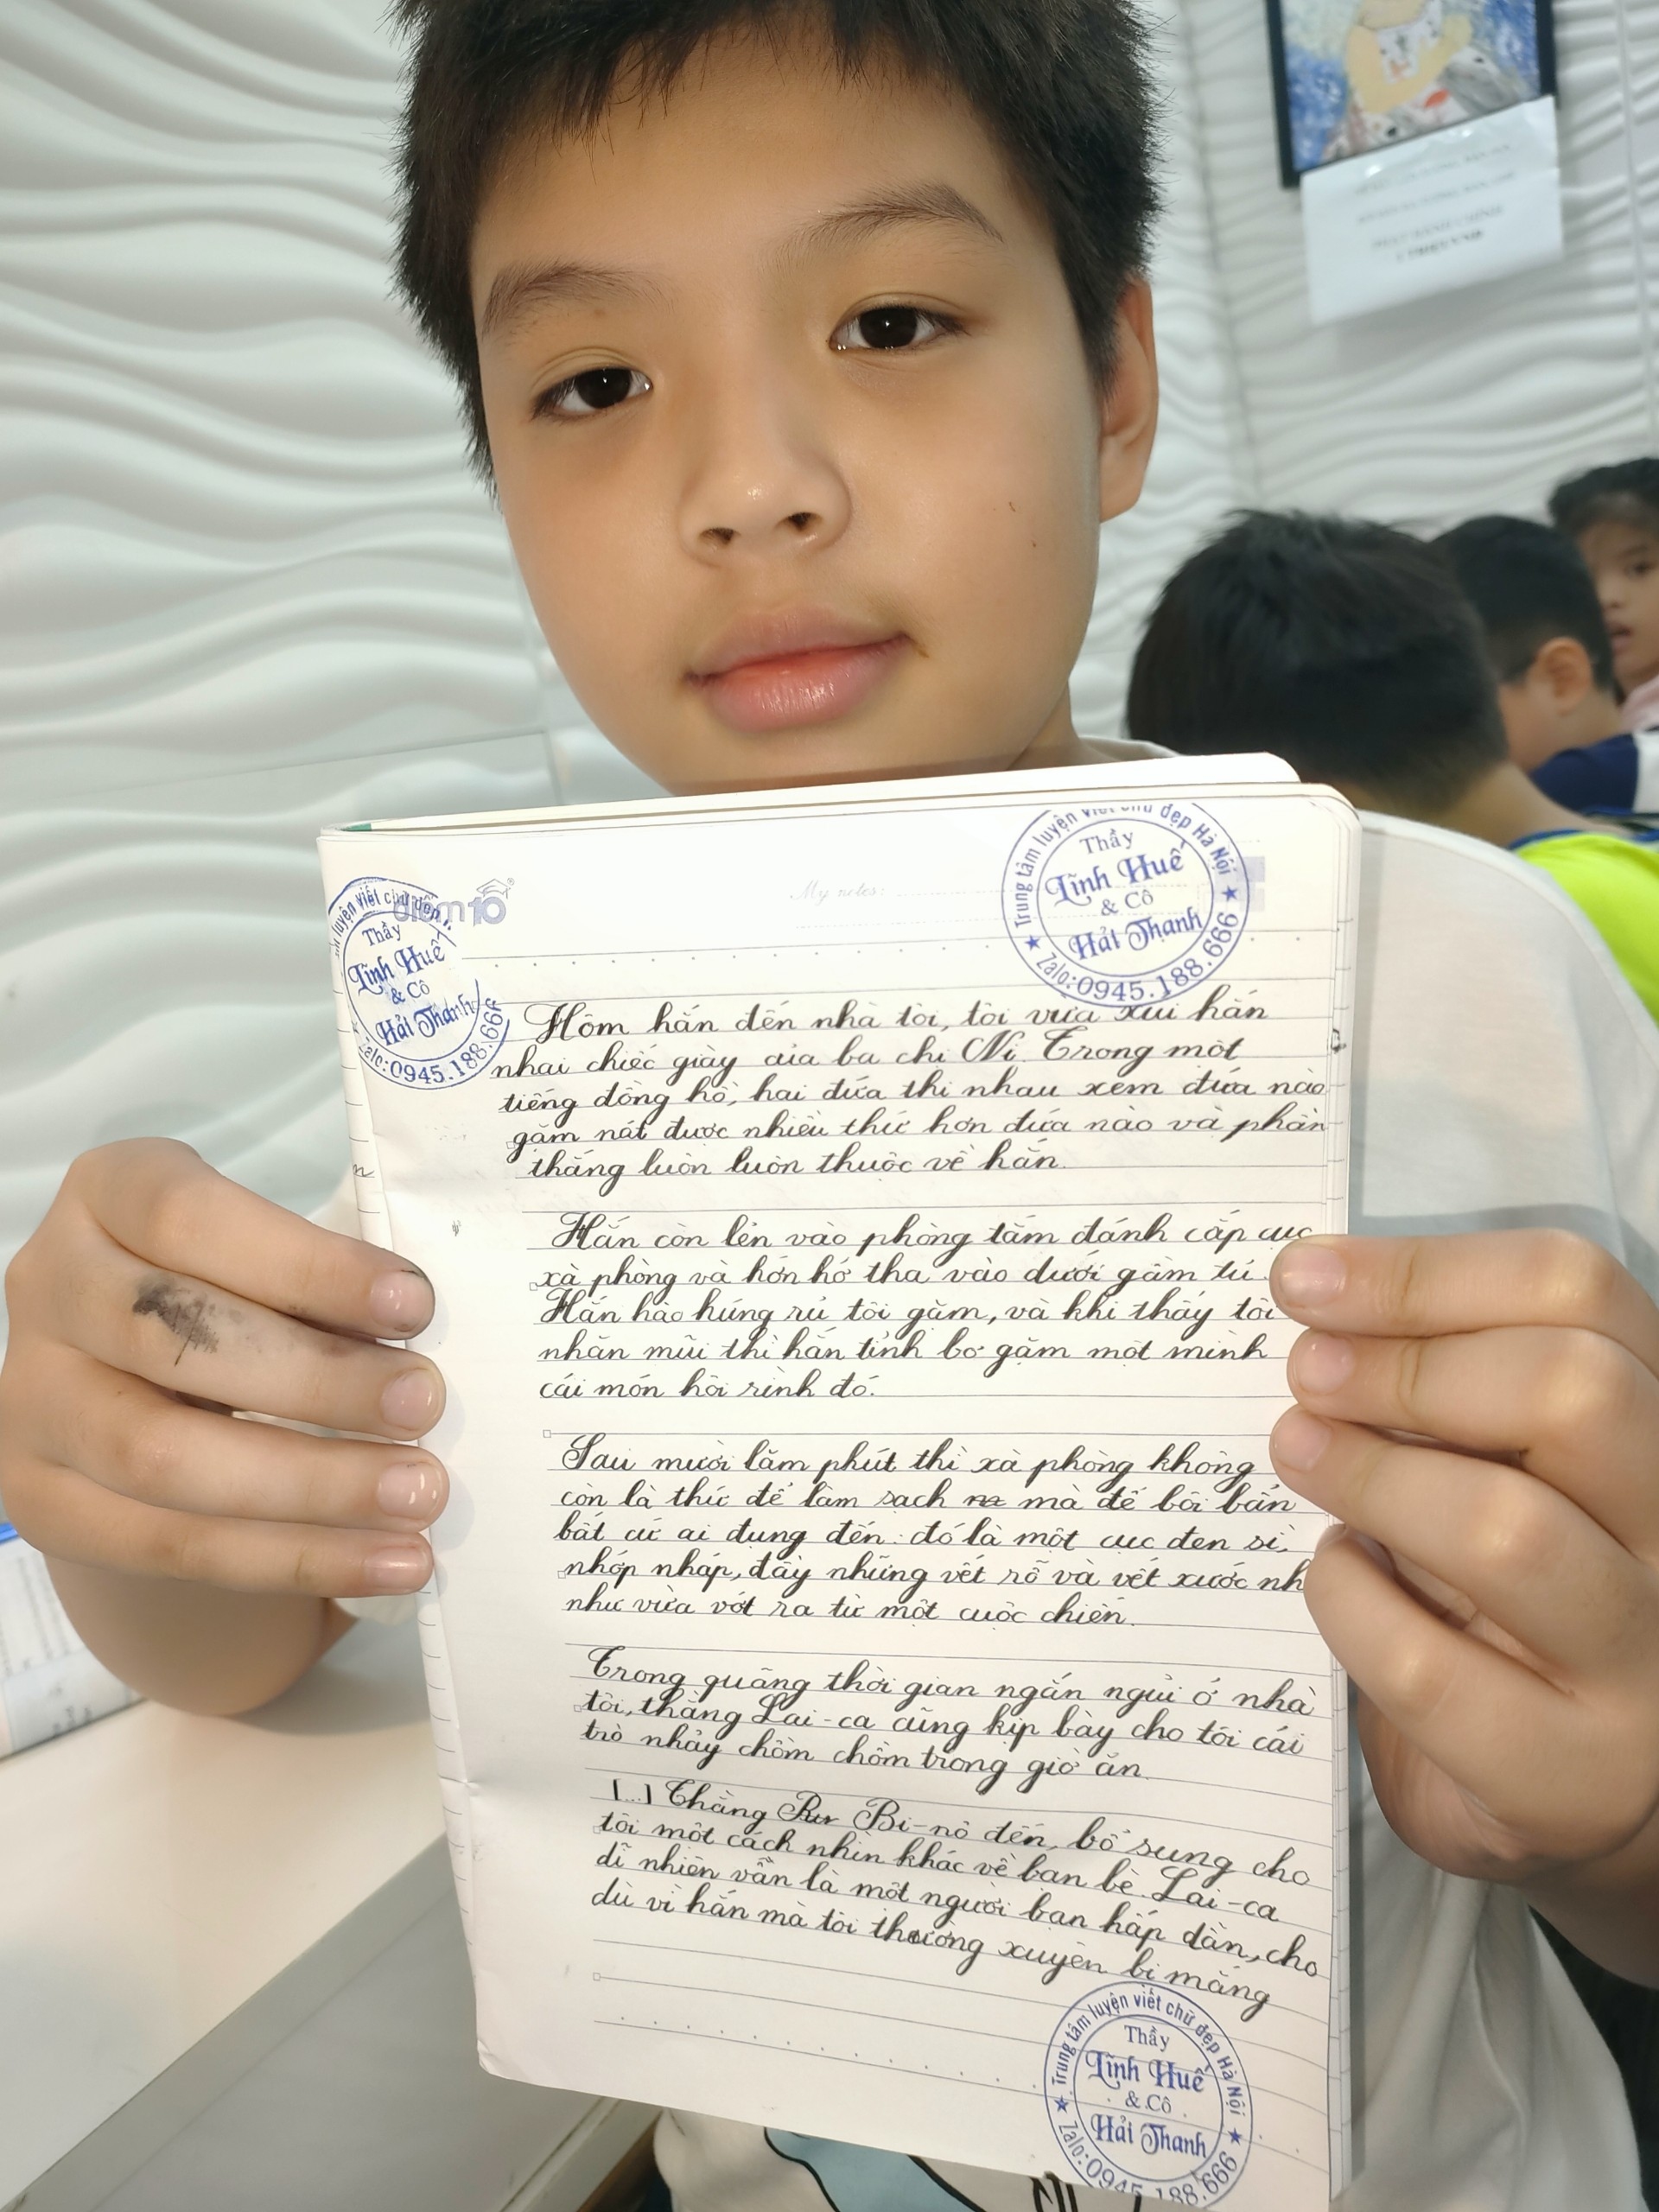 điểm10
My notes:
Trung tâm luyện viết chữ đẹp Hà Nội
Thầy
Lĩnh Huế
& Cô
Hải Thanh
Zalo:0945.188.666
luyện viết chữ đẹp
Thầy
Lĩnh Huế
& Cô
Hải Thanh
Zalo:0945.188.666
Hôm hắn đến nhà tôi, tôi vừa xúi hắn
nhai chiếc giày của ba chị Ni. Trong một
tiếng đồng hồ, hai đứa thi nhau xem đứa nào
gặm nát được nhiều thứ hơn đứa nào và phần
thắng luôn luôn thuộc về hắn.
Hắn còn lẻn vào phòng tắm đánh cắp cục
xà phòng và hớn hở tha vào dưới gầm tủ.
Hắn hào hứng rủ tôi gặm, và khi thấy tôi
nhăn mũi thì hắn tỉnh bơ gặm một mình
cái món hôi rình đó.
Sau mười lăm phút thì xà phòng không
còn là thứ để làm sạch mà để bôi bẩn
bất cứ ai đụng đến: đó là một cục đen sì,
nhớp nháp, đầy những vết rỗ và vết xước nh
như vừa vớt ra từ một cuộc chiến.
Trong quãng thời gian ngắn ngủi ở nhà
tôi, thằng Lai-ca cũng kịp bày cho tôi cái
trò nhảy chồm chồm trong giờ ăn.
(...) Thằng Bi-nô đến, bổ sung cho
tôi một cách nhìn khác về bạn bè. Lai-ca
dĩ nhiên vẫn là một người bạn hấp dẫn, cho
dù vì hắn mà tôi thường xuyên bị mắng
Trung tâm luyện viết chữ đẹp Hà Nội
Thầy
Lĩnh Huế
& Cô
Hải Thanh
Zalo:0945.188.666